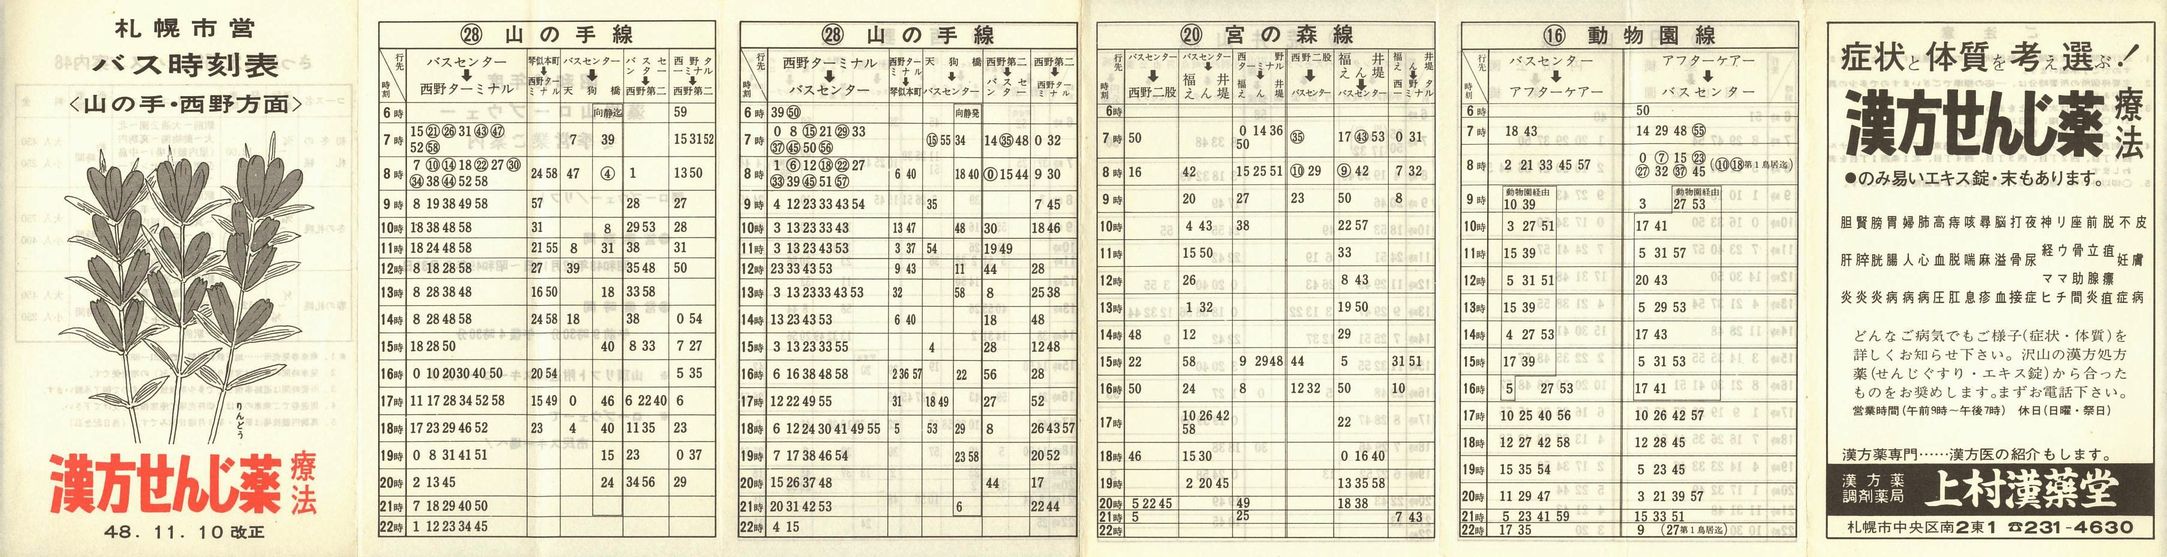 札幌市営
バス時刻表
<山の手・西野方面>
りんどう
漢方せんじ薬 療法
48. 11. 10 改正
㉘ 山の手線
行先 時刻 バスセンター➡西野ターミナル 琴似本町➡西野ターミナル バスセンター➡天狗橋 バスセンター➡西野第二 西野ターミナル➡西野第二
6時 向静迄 59
7時 15 ㉑ ㉖ 31 ㊸ ㊼ 7 39 15 31 52
52 58
8時 7 ⑩ ⑭ 18 ㉒ 27 ㉚ 24 58 47 ④ 1 13 50
㉞ 38 ㊹ 52 58
9時 8 19 38 49 58 57 28 27
10時 18 38 48 58 31 8 29 53 28
11時 18 24 48 58 21 55 8 31 38 31
12時 8 18 28 58 27 39 35 48 50
13時 8 28 38 48 16 50 18 33 58
14時 8 28 48 58 24 58 18 38 0 54
15時 18 28 50 40 8 33 7 27
16時 0 10 20 30 40 50 20 54 5 35
17時 11 17 28 34 52 58 15 49 0 46 6 22 40 6
18時 17 23 29 46 52 23 4 40 11 35 23
19時 0 8 31 41 51 15 23 0 37
20時 2 13 45 24 34 56 29
21時 7 18 29 40 50
22時 1 12 23 34 45
㉘ 山の手線
行先 時刻 西野ターミナル➡バスセンター 西野ターミナル➡琴似本町 天狗橋➡バスセンター 西野第二➡バスセンター 西野第二➡西野ターミナル
6時 39 ㊿ 向静発
7時 0 8 ⑮ 21 ㉙ 33 ⑮ 55 34 14 ㉟ 48 0 32
㊲ ㊺ 50 56
8時 1 ⑥ 12 ⑱ ㉒ 27 6 40 18 40 ⓪ 15 44 9 30
㉝ 39 ㊺ 51 57
9時 4 12 23 33 43 54 35 7 45
10時 3 13 23 33 43 13 47 48 30 18 46
11時 3 13 23 43 53 3 37 54 19 49
12時 23 33 43 53 9 43 11 44 28
13時 3 13 23 33 43 53 32 58 8 25 38
14時 13 23 43 53 6 40 18 48
15時 3 13 23 33 55 4 28 12 48
16時 6 16 38 48 58 2 36 57 22 56 28
17時 12 22 49 55 31 18 49 27 52
18時 6 12 24 30 41 49 55 5 53 29 8 26 43 57
19時 7 17 38 46 54 23 58 20 52
20時 15 26 37 48 44 17
21時 20 31 42 53 6 22 44
22時 4 15
⑳ 宮の森線
行先 時刻 バスセンター➡西野二股 バスセンター➡福井えん堤 西野ターミナル➡福井えん堤 西野二股➡バスセンター 福井えん堤➡バスセンター 福井えん堤➡西野ターミナル
6時
7時 50 0 14 36 ㉟ 17 ㊸ 53 0 31
50
8時 16 42 15 25 51 ⑩ 29 ⑨ 42 7 32
9時 20 27 23 50 8
10時 4 43 38 22 57
11時 15 50 33
12時 26 8 43
13時 1 32 19 50
14時 48 12 29
15時 22 58 9 29 48 44 5 31 51
16時 50 24 8 12 32 50 10
17時 10 26 42 22
58
18時 46 15 30 0 16 40
19時 2 20 45 13 35 58
20時 5 22 45 49 18 38
21時 5 25 7 43
22時
⑯ 動物園線
行先 時刻 バスセンター➡アフターケアー アフターケアー➡バスセンター
6時 50
7時 18 43 14 29 48 ㊺
8時 2 21 33 45 57 0 ⑦ 15 ㉓ (⑩⑱第1鳥居迄)
㉗ 32 ㊲ 45
9時 動物園経由 10 39 3 動物園経由 27 53
10時 3 27 51 17 41
11時 15 39 5 31 57
12時 5 31 51 20 43
13時 15 39 5 29 53
14時 4 27 53 17 43
15時 17 39 5 31 53
16時 5 27 53 17 41
17時 10 25 40 56 10 26 42 57
18時 12 27 42 58 12 28 45
19時 15 35 54 5 23 45
20時 11 29 47 3 21 39 57
21時 5 23 41 59 15 33 51
22時 17 35 9 (27第1鳥居迄)
症状と体質を考え選ぶ!
漢方せんじ薬 療法
●のみ易いエキス錠・末もあります。
胆腎膀胃婦肺高痔咳尋脳打夜神リ座前脱不皮
肝膵胱腸人心血脱喘麻溢骨尿経ウ骨立疽妊膚
ママ助腺瘰
炎炎炎病病病圧肛息疹血接症ヒチ間炎疽症病
どんなご病気でもご様子(症状・体質)を
詳しくお知らせ下さい。沢山の漢方処方
薬(せんじぐすり・エキス錠)から合った
ものをお奨めします。まずお電話下さい。
営業時間(午前9時~午後7時) 休日(日曜・祭日)
漢方薬専門……漢方医の紹介もします。
漢方薬調剤薬局 上村漢薬堂
札幌市中央区南2東1 ☎231-4630